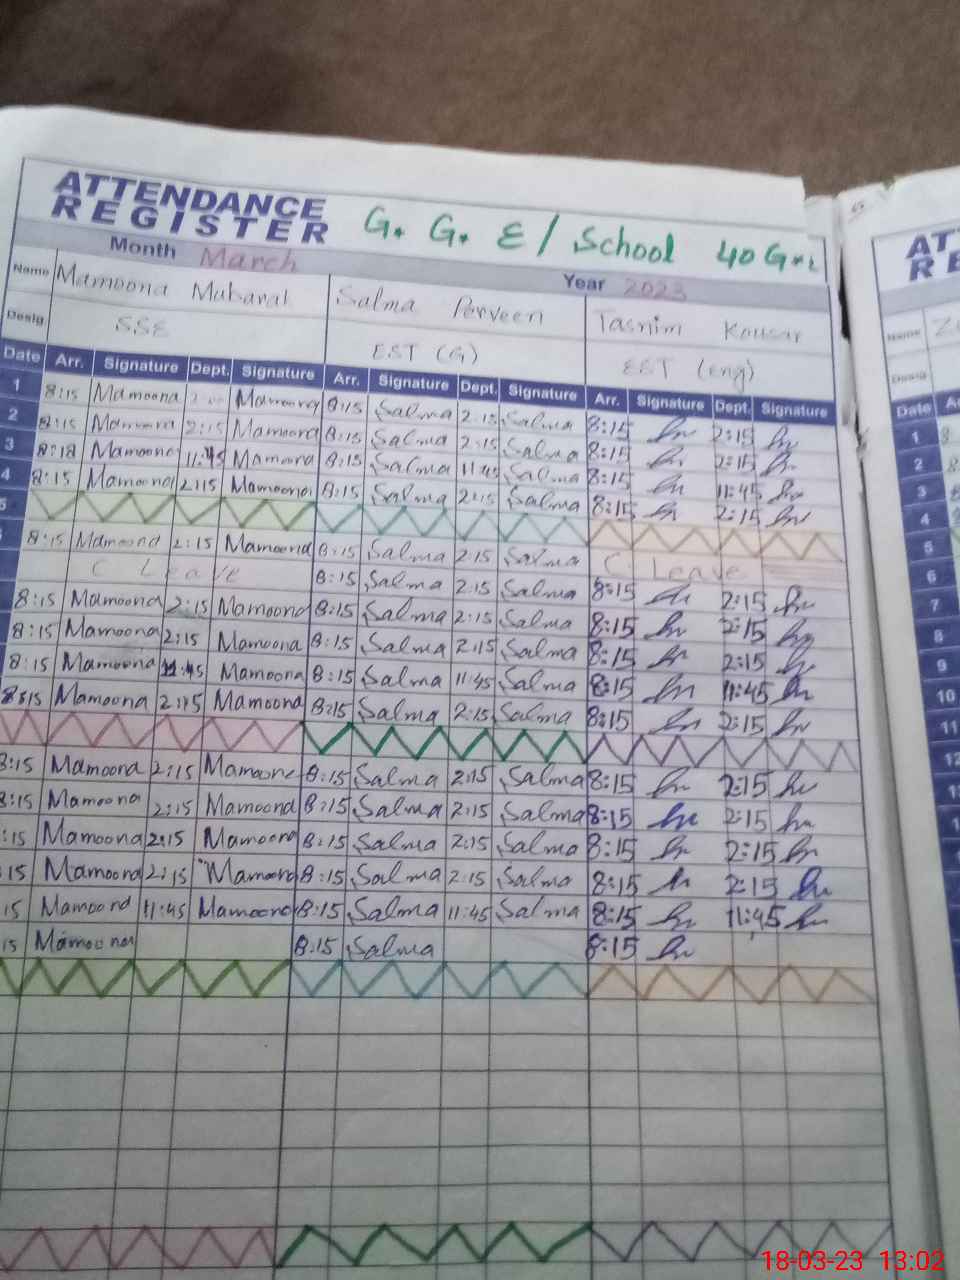 ATTENDANCE
REGISTER
G. G. E / School 40 G
Month March Year 2023
Name Mamoona Mubarak Salma Perveen Tasnim Kousar
Desig SSE EST (G) EST (eng)
Date Arr. Signature Dept. Signature Arr. Signature Dept. Signature Arr. Signature Dept. Signature
1 8:15 Mamoona Mamoona 8:15 Salma 2:15 Salma 8:15 2:15
2 8:15 Mamoona 2:15 Mamoona 8:15 Salma 2:15 Salma 8:15 2:15
3 8:18 Mamoona 11:45 Mamoona 8:15 Salma 11:45 Salma 8:15 11:45
4 8:15 Mamoona 2:15 Mamoona 8:15 Salma 2:15 Salma 8:15 2:15
5
8:15 Mamoona 2:15 Mamoona 8:15 Salma 2:15 Salma C. Leave
C Leave 8:15 Salma 2:15 Salma 8:15 2:15
8:15 Mamoona 2:15 Mamoona 8:15 Salma 2:15 Salma 8:15 2:15
8:15 Mamoona 2:15 Mamoona 8:15 Salma 2:15 Salma 8:15 2:15
8:15 Mamoona 11:45 Mamoona 8:15 Salma 11:45 Salma 8:15 11:45
8:15 Mamoona 2:15 Mamoona 8:15 Salma 2:15 Salma 8:15 2:15
8:15 Mamoona 2:15 Mamoona 8:15 Salma 2:15 Salma 8:15 2:15
8:15 Mamoona 2:15 Mamoona 8:15 Salma 2:15 Salma 8:15 2:15
:15 Mamoona 2:15 Mamoona 8:15 Salma 2:15 Salma 8:15 2:15
15 Mamoona 2:15 Mamoona 8:15 Salma 2:15 Salma 8:15 2:15
15 Mamoona 11:45 Mamoona 8:15 Salma 11:45 Salma 8:15 11:45
15 Mamoona 8:15 Salma 8:15
AT
RE
Name
Desig
Date
1
2
3
4
5
6
7
8
9
10
11
12
18-03-23 13:02